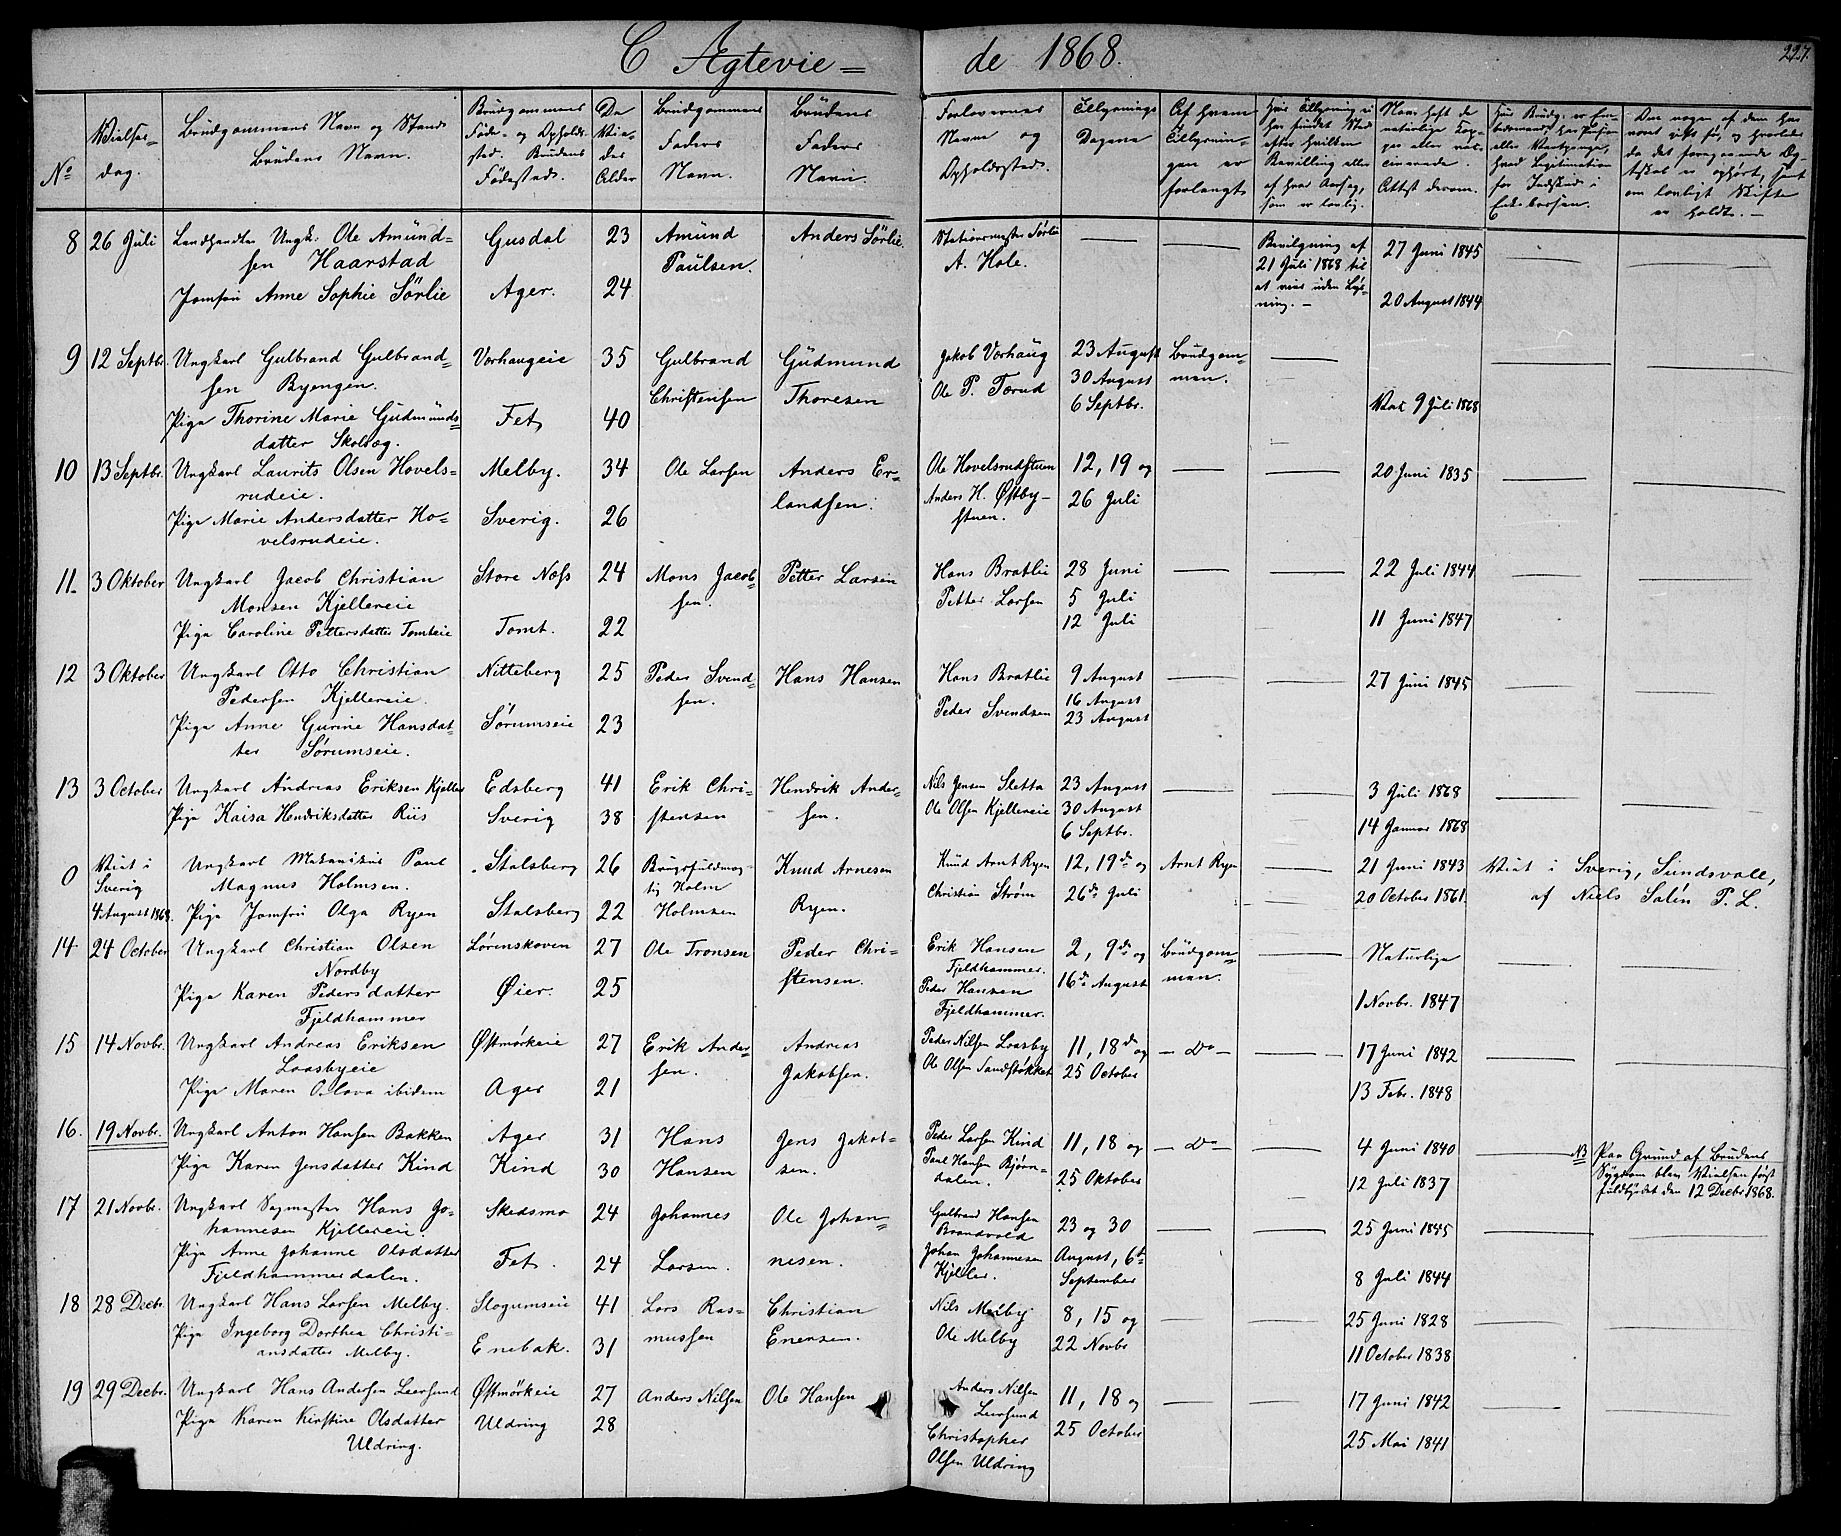 C Agtevie=de 1868.
227.
No
Vielses-
dag.
Brudgommens Navn og Stand.
Brudens Navn.
Brudgommens
Føde- og Opholds-
sted. Brudens
Fødested.
De
Vie-
des
Alder
Brudgommens
Faders
Navn.
Brudens
Faders
Navn.
Forlovernes
Navne og
Opholdssted.
Tillysnings
Dagene
Af hvem
Tillysnin-
gen er
forlangt
Naar havt de
naturlige Kop-
per eller vac-
cinerede.
Attest derom.
8 26 Juli Landhandler Ungk. Ole Amund= Gusdal 23 Amund Anders Sørlie Stationsmester Sørlie — — Bevilgning af 27 Juni 1845 — —
sen Haarstad Paulsen. A. Hole. 21 Juli 1868 til
Jomfru Anne Sophie Sørlie Ager. 24 at vies uden Lys- 20 August 1844
ning. —
9 12 Septbr. Ungkarl Gulbrand Gulbrand= Vorhaugeie 35 Gulbrand Gudmund Jakob Vorhaug 23 August Brudgom= — — —
sen Byengen. Christensen Thoresen Ole P. Tærud 30 August man.
Pige Thorine Marie Gudmunds= Fet 40 6 Septbr. Vac 9 Juli 1868
datter Skolvæg.
10 13 Septbr. Ungkarl Laurits Olsen Hovels= Melby. 34 Ole Larsen Anders Er= Ole Hovelsrudstuen 12, 19 og — — 20 Juni 1835 — —
rudeie. landsen. Anders H. Østby- 26 Juli
Pige Marie Andersdatter Ho= Sverig. 26 stuen.
velsrudeie.
11. 3 Oktober Ungkarl Jacob Christian Store Næss 24 Mons Jacob= Petter Larsen Hans Bratlie 28 Juni — — 22 Juli 1844 — —
Monsen Kjellereie sen. Petter Larsen 5 Juli
Pige Caroline Pettersdatter Tomteie Tomt. 22 12 Juli 11 Juni 1847
12 3 Oktober Ungkarl Otto Christian Nitteberg 25 Peder Svend= Hans Hansen Hans Bratlie 9 August — — 27 Juni 1845 — —
Pedersen Kjellereie. sen. Peder Svendsen 16 August
Pige Anne Gurine Hansdat= Sørumseie 23 23 August
ter Sørumseie.
13 3 October Ungkarl Andreas Eriksen Kjeller Edsberg 41 Erik Chri= Hendrik Ander= Nils Jensen Sletta 23 August — — 3 Juli 1868 — —
Pige Kaisa Hendriksdatter Riis Sverig 38 stensen sen. Ole Olsen Kjellereie 30 August 14 Januar 1868
6 Septbr.
0 Viet i Ungkarl Mekanikus Paul Stalsberg 26 Brugsfuldmæg= Knud Arnesen Knud Arnt Ryen 12, 19de og Arnt Ryen — 21 Juni 1843 Viet i Sverig, Sundsvall,
Sverig Magnus Holmsen. tig Holm Ryen. Christian Strøm 26de Juli 20 October 1861. af Niels Salén P. L.
4 August 1868. Pige Jomfru Olga Ryen Stalsberg 22 Holmsen
14 24 October Ungkarl Christian Olsen Lørenskoven 27 Ole Tronsen Peder Chri= Erik Hansen 2, 9de og Brudgom= — Naturlige — —
Nordby stensen. Fjeldhammer. 16de August man.
Pige Karen Pedersdatter Øier. 25 Peder Hansen 1 Novbr. 1847
Fjeldhammer Fjeldhammer.
15 14 Novbr. Ungkarl Andreas Eriksen Østmørkeie 27 Erik Ander= Andreas Peder Nilsen Losby 11, 18de og — Do — — 17 Juni 1842 — —
Loosbyeie sen. Jakobsen. Ole Olsen Sandstøkket 25 October
Pige Maren Olava ibidem Ager 21 13 Febr. 1848
16. 19 Novbr. Ungkarl Anton Hansen Bakken Ager 31 Hans Jens Jakob= Peder Larsen Kind 11, 18 og — Do — — 4 Juni 1840 — NB Paa Grund af Brudens
Pige Karen Jensdatter Kind Kind 30 Hansen sen. Paul Hansen Bjørn= 25 Oktober 12 Juli 1837 Sygdom blev Vielsen først
dalen. fuldbyrdet den 12 Decbr. 1868.
17 21 Novbr. Ungkarl Sagmester Hans Jo= Skedsmo 24 Johannes Ole Johan= Gulbrand Hansen 23 og 30 — — 25 Juni 1845 — —
hannesen Kjellereie. Brandvold
Pige Anne Johanne Olsdatter Fet. 24 Larsen. nesen. Johan Johannesen August, 6te
Fjeldhammerdalen. Kjeller. September 8 Juli 1844
18 28 Decbr. Ungkarl Hans Larsen Melby. Slogumseie 41 Lars Ras= Christian Nils Melby 8, 15 og — — 25 Juni 1828 — —
Pige Ingeborg Dorthea Christi= Enebak. 31 mussen Enersen. Ole Melby 22 Novbr
ansdatter Melby. 11 October 1838
19 29 Decbr. Ungkarl Hans Andersen Leersund Østmørkeie 27 Anders Nilsen Ole Hansen Anders Nilsen 11, 18 og — — 17 Juni 1842 — —
Pige Karen Kirstine Olsdatter Uldring 28 Leersund 25 October
Uldring. Christopher 25 Mai 1841
Olsen Uldring